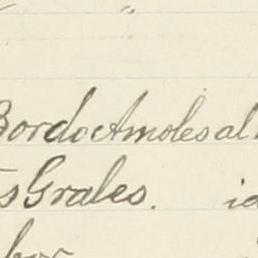 "
Bordo Amoles al
s Grales. id
bor